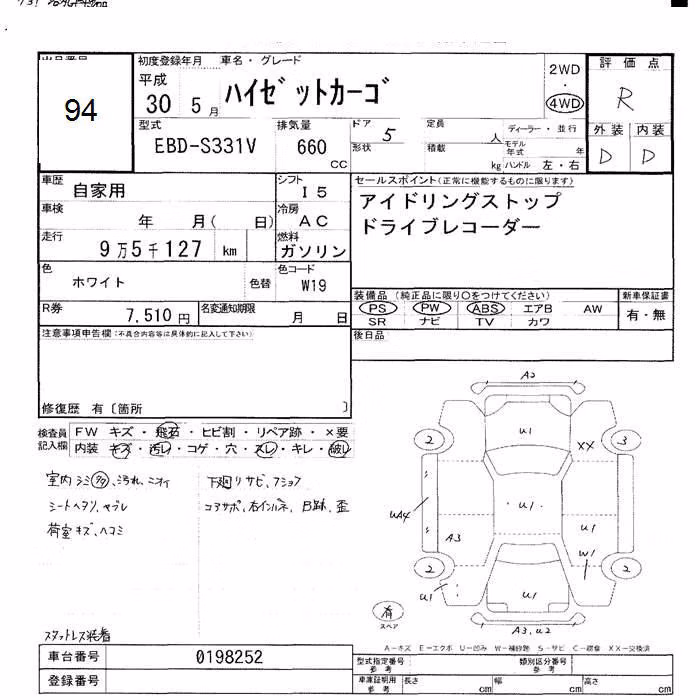 初度登録年月 車名・グレード
平成
30 5月 ハイゼットカーゴ
2WD
・
4WD
評価点
R
94
型式 排気量 ドア 定員
EBD-S331V 660 CC 5 人
形状 積載 kg
ディーラー・並行
モデル年式 年
ハンドル 左・右
外装 内装
D D
車歴 自家用 シフト I5
車検 年 月( 日) 冷房 AC
走行 9万5千127 km 燃料 ガソリン
セールスポイント(正常に機能するものに限ります)
アイドリングストップ
ドライブレコーダー
色 ホワイト 色替 色コード W19
R券 7,510円 名変通知期限 月 日
装備品(純正品に限り○をつけてください) 新車保証書
PS PW ABS エアB AW 有・無
SR ナビ TV カワ
後日品
注意事項申告欄(不具合内容等は具体的に記入して下さい)
修復歴 有〔箇所 〕
検査員記入欄 FW キズ・飛石・ヒビ割・リペア跡・×要
内装 キズ・汚レ・コゲ・穴・スレ・キレ・破レ
室内シミ多、汚れ、ニオイ
シートヘタリ、ヤブレ
荷室キズ、ヘコミ
下廻りサビ、
コアサポ、右インパネ、B跡、歪
A2
2 U1 XX 3
UA4 U1 U1
A3 W1
2 U1 U1 2
有
スペア
A3, U2
スタットレス装着
A-キズ E-エクボ U-凹み W-補修跡 S-サビ C-腐食 XX-交換済
車台番号 0198252
登録番号
型式指定番号 参考 類別区分番号 参考
車庫証明用 参考 長さ cm 幅 cm 高さ cm